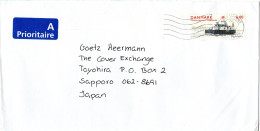 A
Prioritaire
DANMARK
Goetz Heermann
The Cover Exchange
Toyohira P.O. Box 2
Sapporo 062-8691
Japan